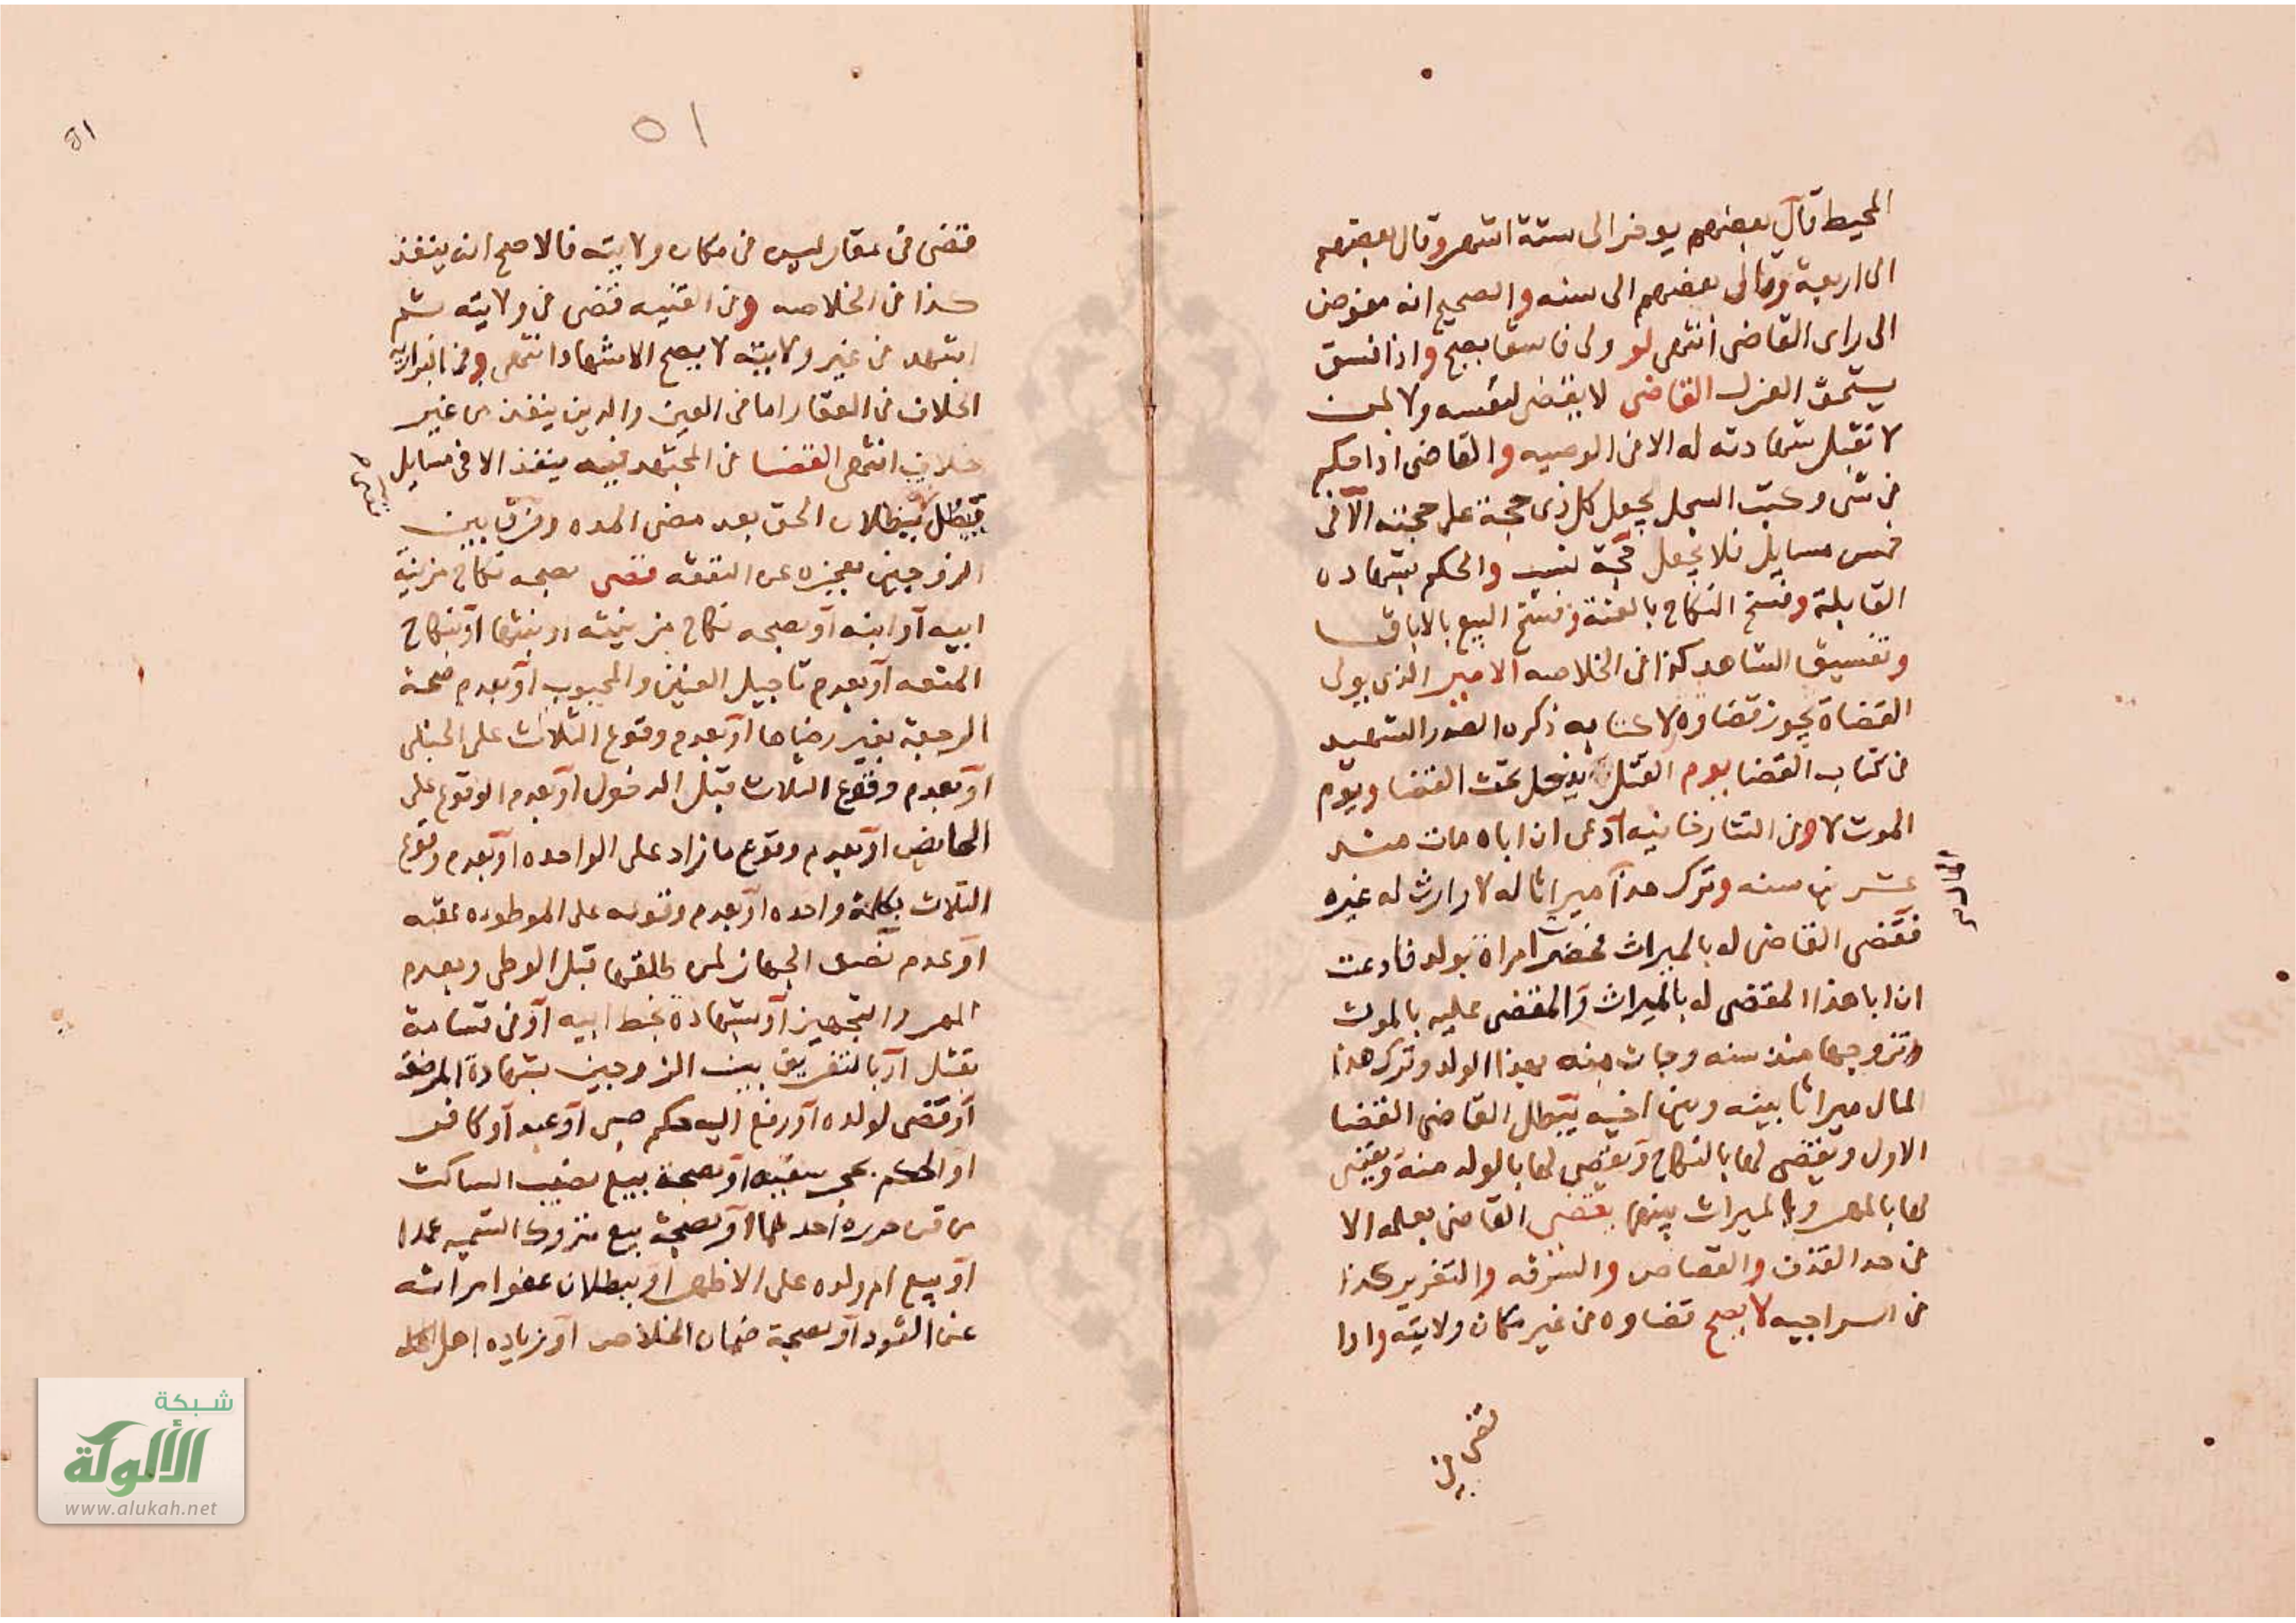 المحيط قال بعضهم يوخر الى ستة اشهر وقال بعضهم
الى اربعة وقال بعضهم الى سنه والصحيح انه مفوض
الى راى القاضى انتهى لو ولى فاسقا يصح واذا فسق
يستحق العزل القاضى لا يقضى لنفسه ولا لمن
لا تقبل شهادته له الا فى الوصيه والقاضى اذا حكم
فى شى وكتب السجل يجعل كل ذى حجة على حجته الا فى
خمس مسايل فلا يجعل حجة نسب والحكم بشهاده
القابلة وفسخ النكاح بالعنة وفسخ البيع بالاباق
وتفسيق الشاهد كذا فى الخلاصه الامير الذى يولى
القضاة يجوز قضاوه لا كتابه ذكره الصدر الشهيد
فى كتاب القضا يوم القتل يدخل تحت القضا ويوم
الموت لا وفى التتارخانيه ادعى ان اباه مات منذ
عشرين سنه وترك هذا ميراثا له لا وارث له غيره
فقضى القاضى له بالميراث فحضرت امراة بولد فادعت
ان ابا هذا المقضى له بالميراث والمقضى عليه بالموت
وتزوجها منذ سنه وجات منه بهذا الولد وترك هذا
المال ميراثا بينه وبين اخيه يبطل القاضى القضا
الاول ويقضى لها بالنكاح ويقضى لها بالولد منه ويقضى
لها بالمهر وبالميراث بينهما يقضى القاضى بعلمه الا
فى حد القذف والقصاص والسرقه والتعزير كذا
فى السراجيه لا يصح قضاوه فى غير مكان ولايته واذا
قضى فى
٥١
٥١
قضى فى عقار ليس فى مكان ولايته فالاصح انه ينفذ
كذا فى الخلاصه وفى القنيه قضى فى ولايته ثم
اشهد فى غير ولايته لا يصح الاشهاد انتهى وفى البزازيه
الخلاف فى العقار اما فى العين والدين ينفذ من غير
خلاف انتهى القضا فى المجتهد فيه ينفذ الا فى مسايل
ببطلان الحق بعد مضى المده وفرق بين
الزوجين بعجزه عن النفقه قضى بصحه نكاح مزنية
ابيه او ابنه او بصحه نكاح مزنيته او بنتها او بنكاح
المتعه او بعدم تاجيل العنين والمجبوب او بعدم صحة
الرجعة بغير رضاها او بعدم وقوع الثلاث على الحبلى
او بعدم وقوع الثلاث قبل الدخول او بعدم الوقوع على
الحايض او بعدم وقوع ما زاد على الواحده او بعدم وقوع
الثلاث بكلمة واحده او بعدم وقوعه على الموطوه عقبه
او عدم نصف الجهاز لمن طلقها قبل الوطى وبعدم
المهر والتجهيز او بشهادة بخط ابيه او فى قسامة
بقتل او بالتفريق بين الزوجين بشهادة المرضعه
او قضى لولده او رفع اليه حكم صبى او عبد او كافر
او الحكم بحجر سفيه او بصحة بيع نصيب الساكت
من قن حرره احدهما او بصحة بيع متروك التسميه عمدا
او بيع ام ولده على الاظهر او ببطلان عفو امراته
عن القود او بصحة ضمان الخلاص او زياده اهل
شبكة
الألوكة
www.alukah.net